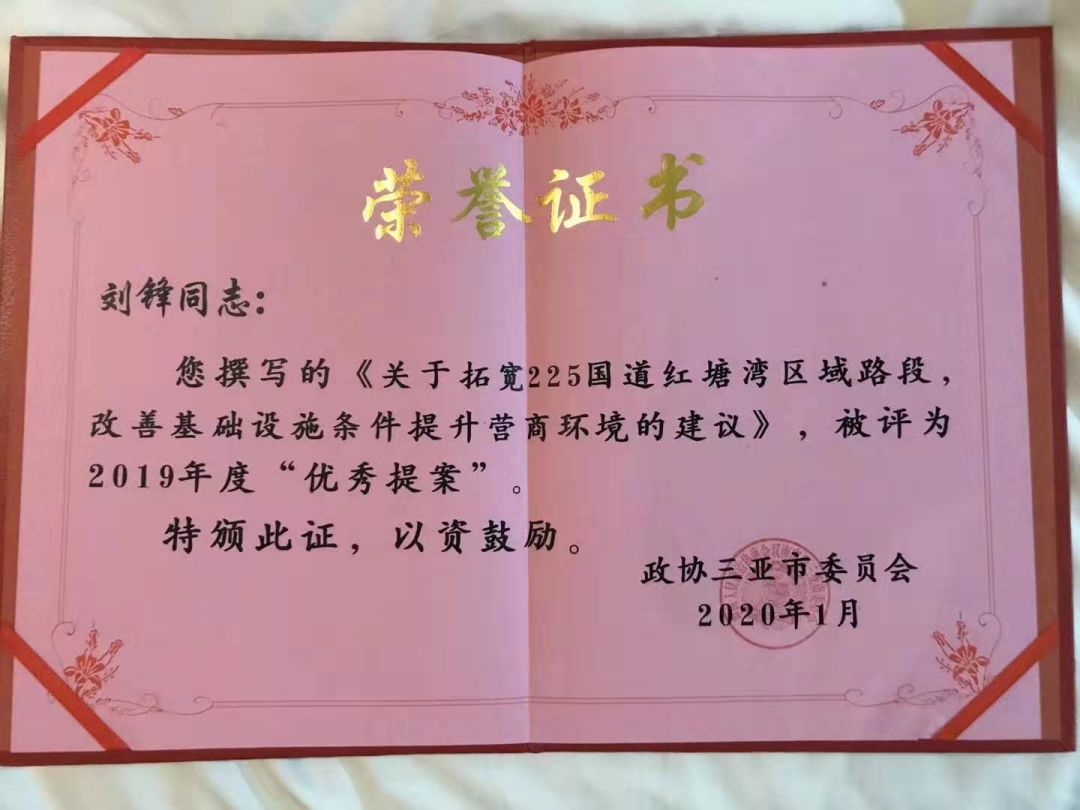 荣誉证书
刘锋同志：
您撰写的《关于拓宽225国道红塘湾区域路段，
改善基础设施条件提升营商环境的建议》，被评为
2019年度“优秀提案”。
特颁此证，以资鼓励。
政协三亚市委员会
2020年1月